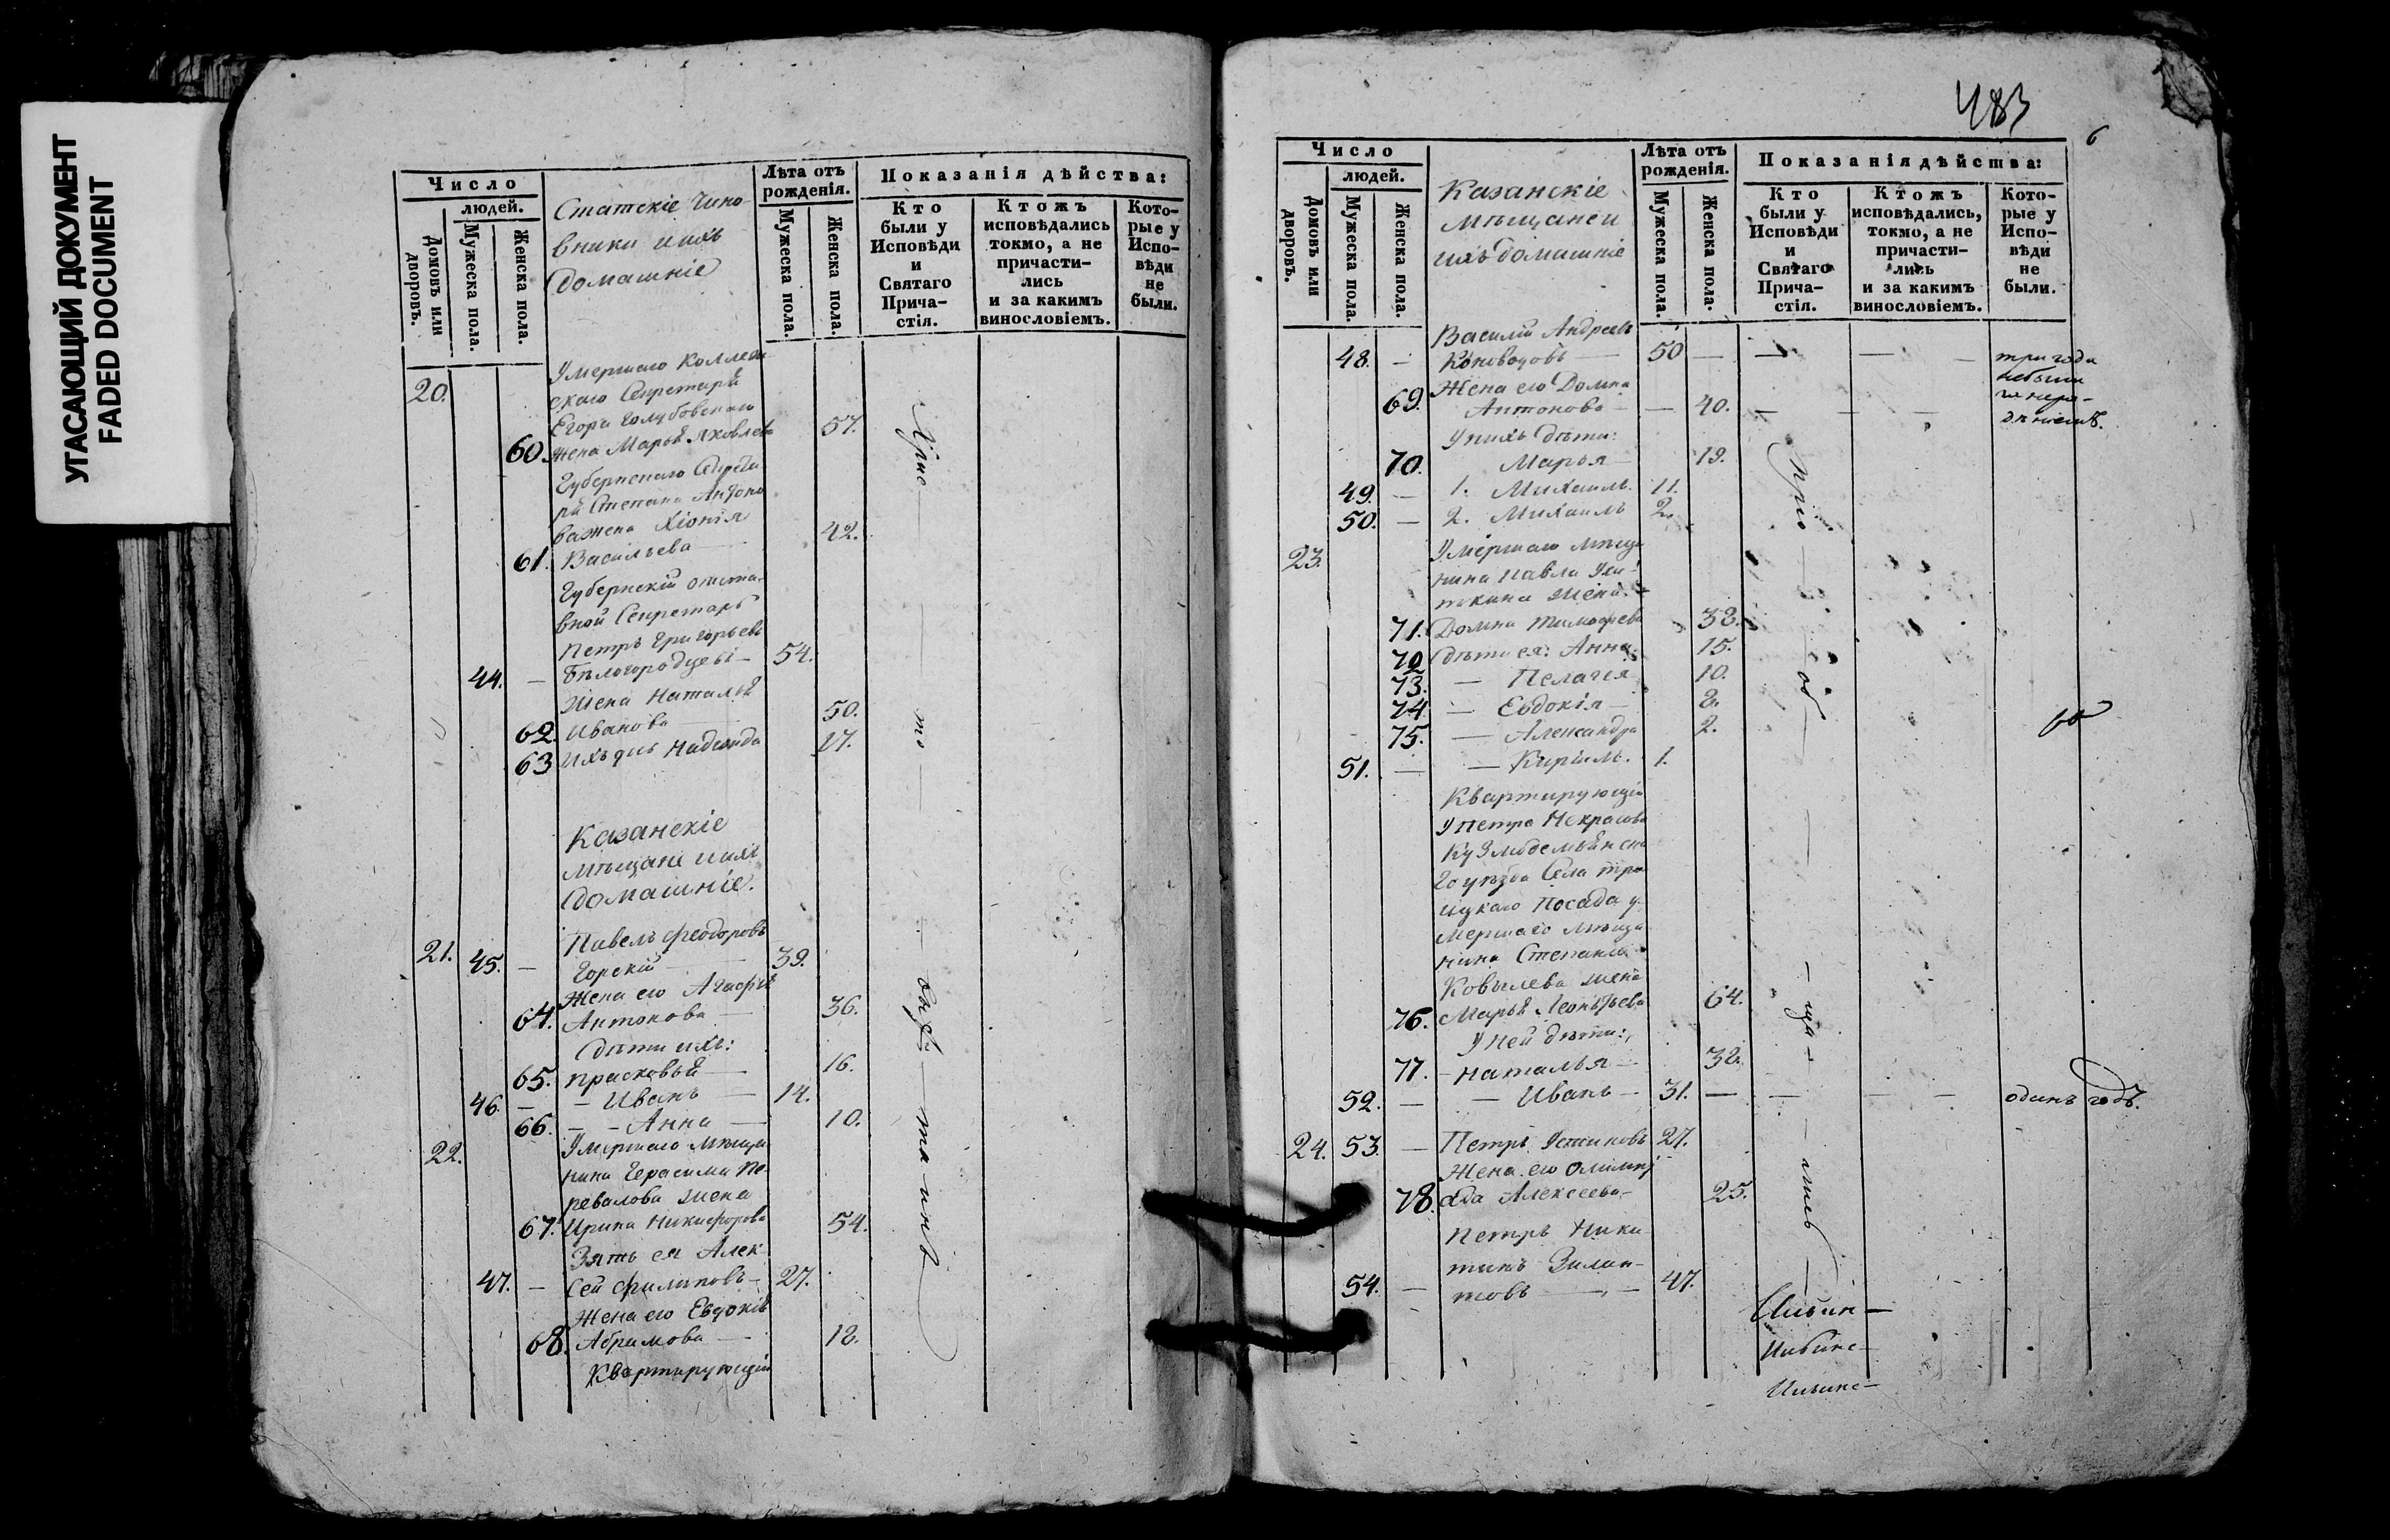 УГАСАЮЩИЙ ДОКУМЕНТ
FADED DOCUMENT
Число
людей.
Домовъ или дворовъ.
Мужеска пола.
Женска пола.
Статскіе Чино-
вники ихъ
домашніе
Лѣта отъ рожденія.
Мужеска пола.
Женска пола.
Показанія дѣйства:
Кто были у Исповѣди и Святаго Прича- стія.
Ктожъ исповѣдались токмо, а не причасти- лись и за какимъ винословіемъ.
Кото- рые у Испо- вѣди не были.
20.
Умершаго Коллеж
скаго Секретаря
Егора Голубовскаго
60. жена Марья Яковлева 57.
Губернскаго Секрета
ря Степана
жена Хіонія
61. Васильева — 42.
Губернскій отста-
вной Секретарь
Петръ Григорьевъ
44. — Бѣлогородцевъ — 54.
Жена Наталья
62. Иванова 50.
63 Ихъ дчь Надежда 17.
Казанскіе
мѣщане ихъ
домашніе.
Павелъ Феодоровъ
21. 45. — Горскій — 39.
Жена его Агафья
64. Антонова — 36.
Дѣти ихъ:
65. Прасковья — 16.
46. — — Иванъ — 14.
66. — — Анна — 10.
22. Умершаго мѣща
нина Герасима Пе-
ревалова жена
67. Ирина Никифорова 54.
Зять ея Алек-
47. — сей Филиповъ — 27.
Жена его Евдокія
68. Абрамова — 18.
Квартирующій
483
6
Число
людей.
Домовъ или дворовъ.
Мужеска пола.
Женска пола.
Казанскіе
мѣщане и
ихъ домашніе
Лѣта отъ рожденія.
Мужеска пола.
Женска пола.
Показанія дѣйства:
Кто были у Исповѣди и Святаго Прича- стія.
Ктожъ исповѣдались, токмо, а не причасти- лись и за какимъ винословіемъ.
Кото- рые у Испо- вѣди не были.
Василій Андреевъ
48. — Коноводовъ — 50 — — — — три года
небыли
Жена его Домна
69. Антонова — — 40. — — —
У нихъ дѣти:
70. Марья — 19.
49. — 1. Михаилъ. 11.
50. — 2. Михаилъ 2.
23. Умершаго мѣща
нина Павла
жена
71. Домна Тимофеева 38.
72 Дѣти ея: Анна. 15.
73. — Пелагея 10.
74 — Евдокія — 8.
75. — Александра 2.
51. — — Кирилъ. 1.
Квартирующій
У Петра Некрасова
Кузмодемьянска
го уѣзда Села Тро
ицкаго Посада у-
мершаго мѣща
нина Степана
Ковылева жена
76. Марья Леонтьева 64.
У ней дѣти:
77. — Наталья — 38.
52. — — Иванъ — 31. — — — — одинъ годъ.
24. 53. — Петръ Устиновъ 27.
Жена его Олимпі
78. ада Алексеева — 25.
Петръ Ники
тинъ Вилан-
54. — товъ — 47.
Ильин—
Ильинс—
Ильинс—